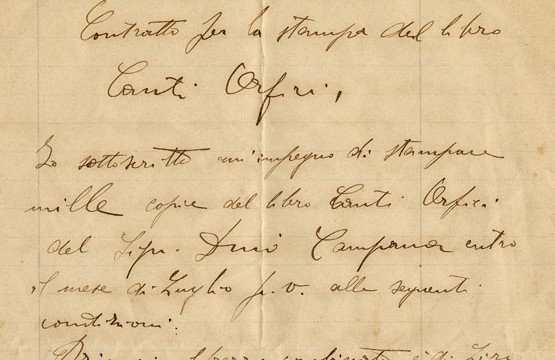 Contratto per la stampa del libro
Canti Orfici,
Io sottoscritto m'impegno di stampare
mille copie del libro Canti Orfici
del Sign. Dino Campana entro
il mese di Luglio p.v. alle seguenti
condizioni:
di Lire